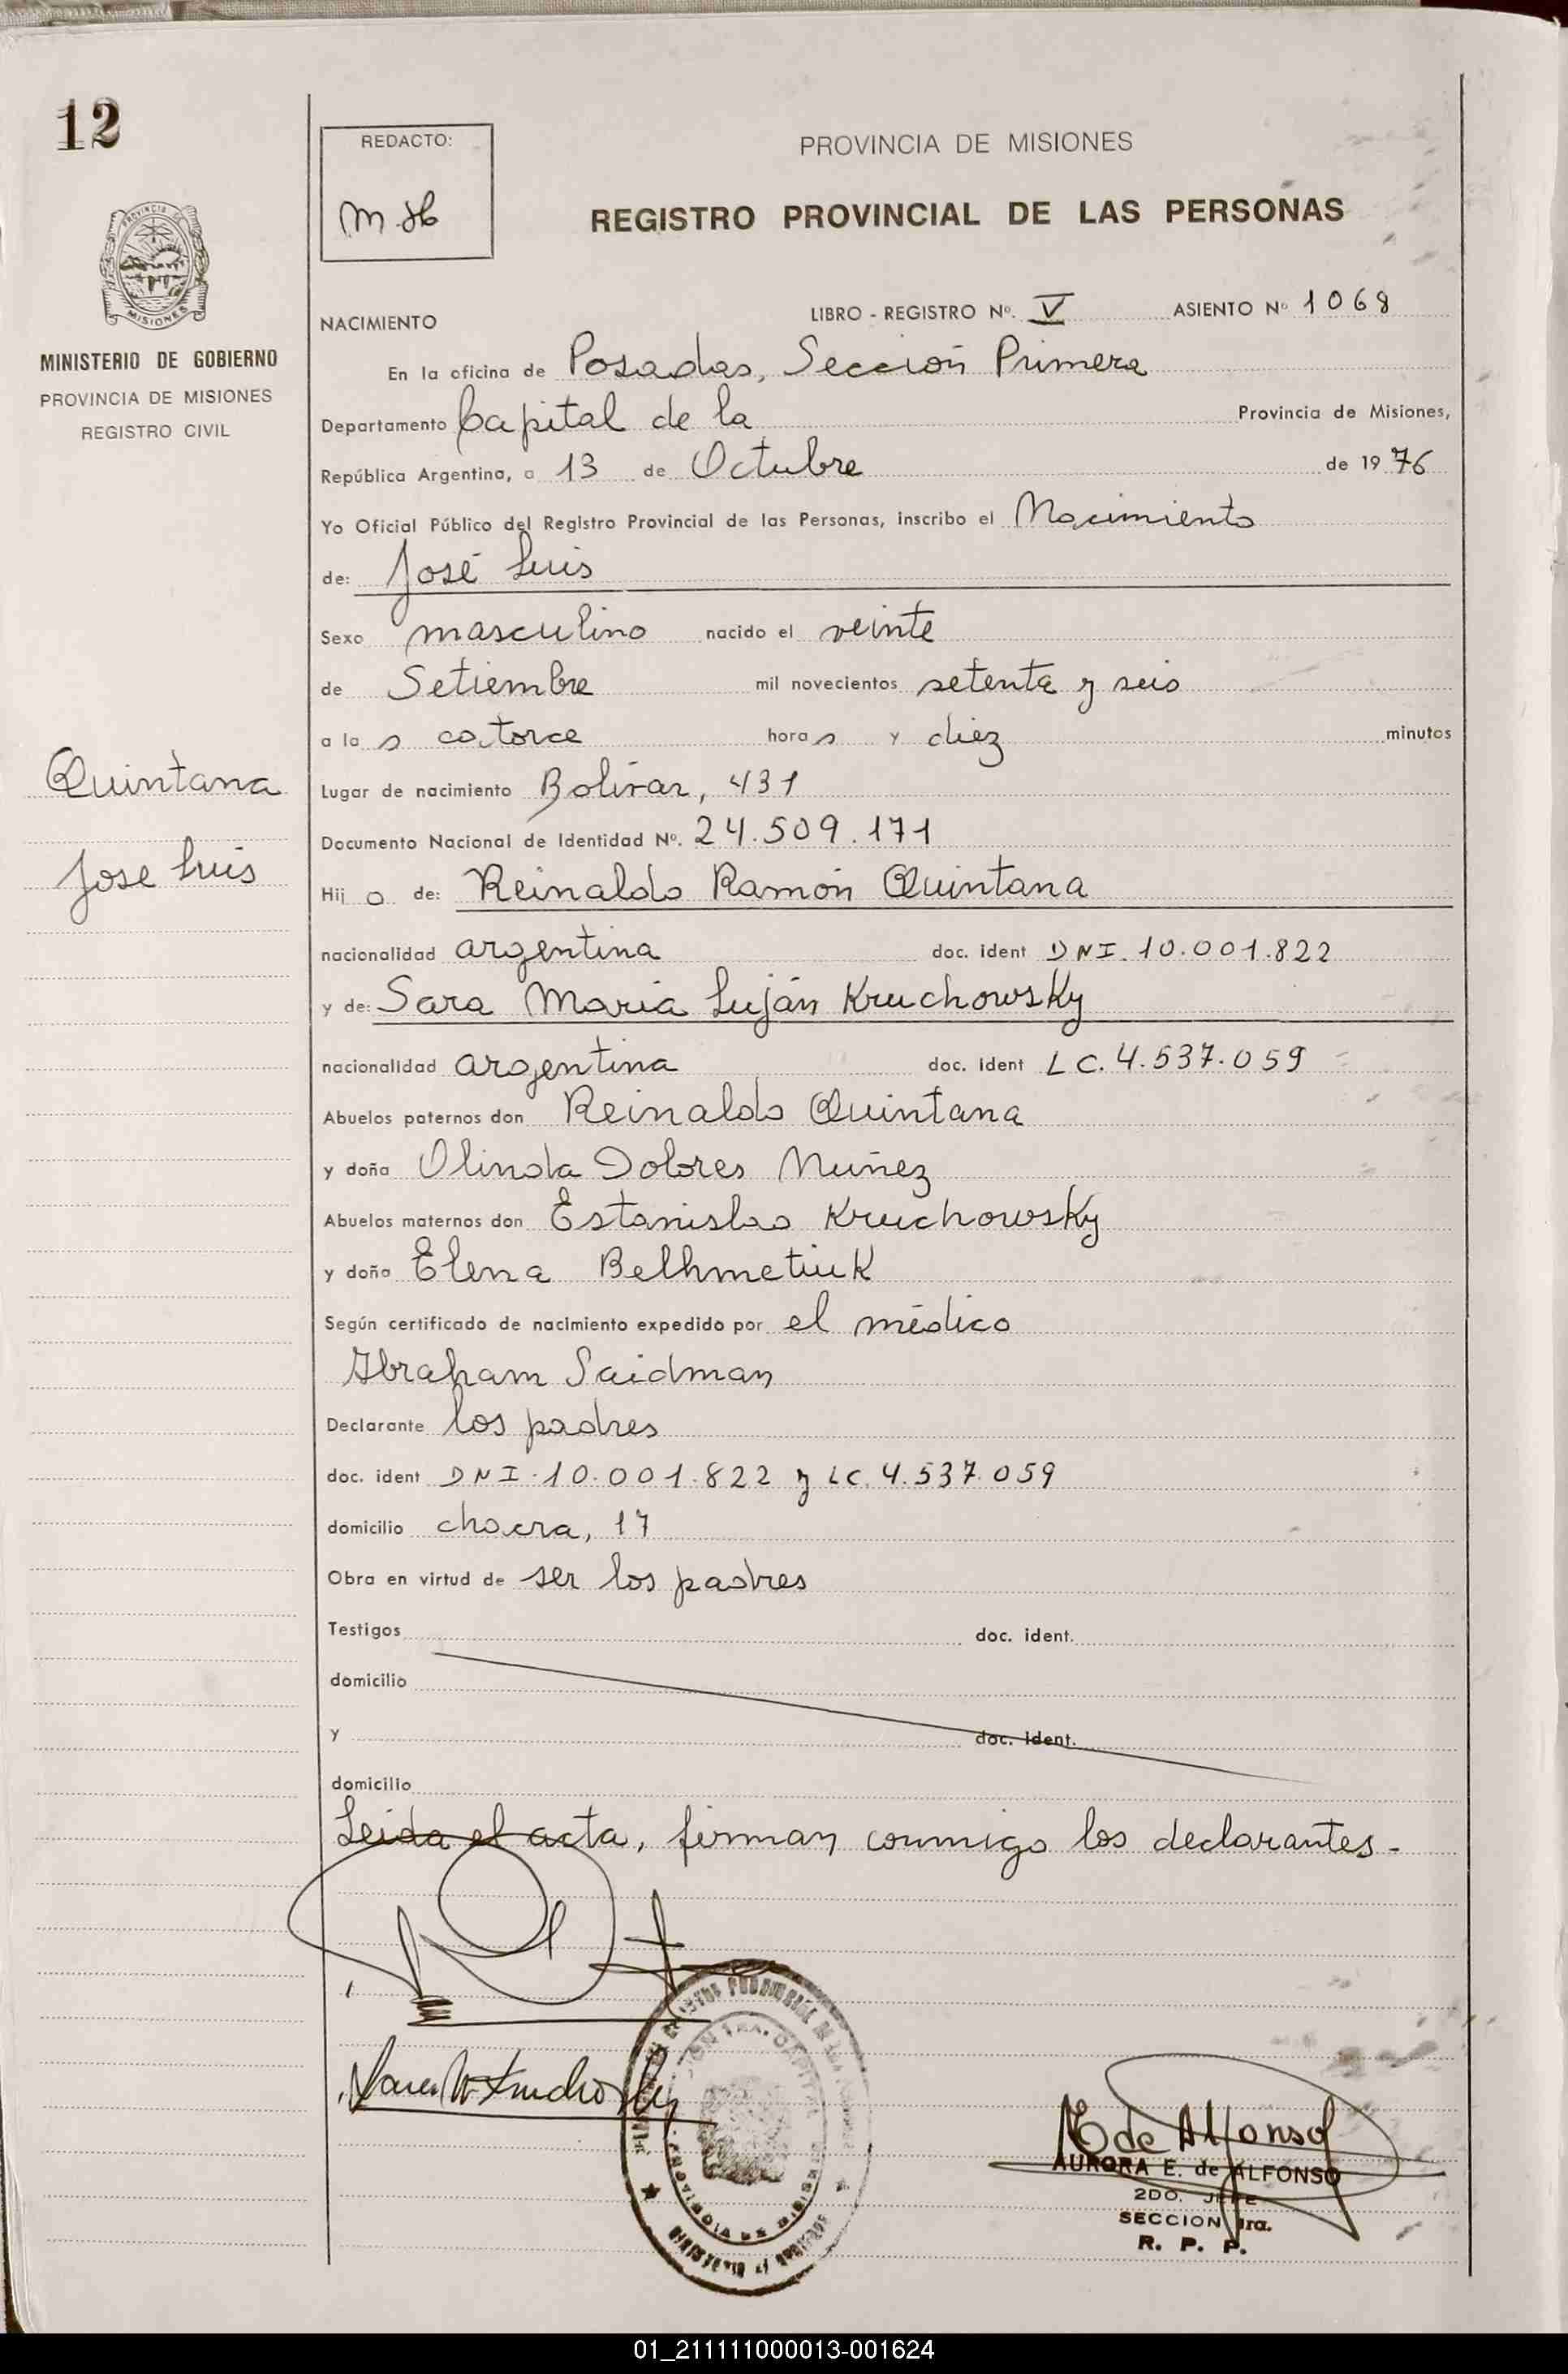 12
REDACTO:
PROVINCIA DE MISIONES
REGISTRO PROVINCIAL DE LAS PERSONAS
MISIONES
MINISTERIO DE GOBIERNO
PROVINCIA DE MISIONES
REGISTRO CIVIL
NACIMIENTO
LIBRO - REGISTRO Nº. V ASIENTO Nº 1068
En la oficina de Posadas, Sección Primera
Departamento Capital de la Provincia de Misiones,
República Argentina, a 13 de Octubre de 1976
Yo Oficial Público del Registro Provincial de las Personas, inscribo el Nacimiento
de: José Luis
Sexo masculino nacido el veinte
de Setiembre mil novecientos setenta y seis
a la s catorce hora s y diez minutos
Quintana
Jose Luis
Lugar de nacimiento Bolívar, 431
Documento Nacional de Identidad Nº. 24.509.171
Hij o de: Reinaldo Ramón Quintana
nacionalidad argentina doc. ident DNI. 10.001.822
y de: Sara María Luján Kruchowsky
nacionalidad argentina doc. ident LC. 4.537.059
Abuelos paternos don Reinaldo Quintana
y doña Olinda Dolores Nuñez
Abuelos maternos don Estanislao Kruchowsky
y doña Elena Belhmetiuk
Según certificado de nacimiento expedido por el médico
Abraham Saidman
Declarante los padres
doc. ident DNI. 10.001.822 y LC. 4.537.059
domicilio chacra, 17
Obra en virtud de ser los padres
Testigos doc. ident.
domicilio
y doc. ident.
domicilio
Leida el acta, firman conmigo los declarantes.-
E de Alfonso
AURORA E. de ALFONSO
2DO. JEFE
SECCION 1ra.
R. P. P.
01_211111000013-001624